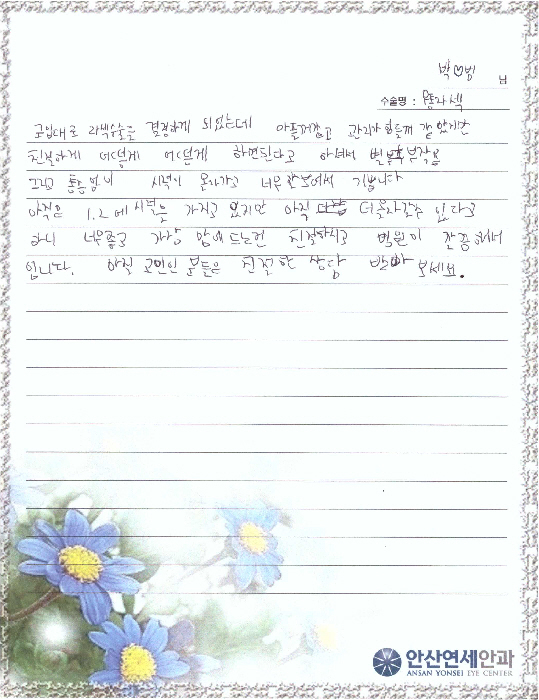 박♡범 님
수술명 : 웨이브라섹
고민대로 라섹수술을 결정하게 되었는데 아플꺼같고 관리가 힘들꺼 같았지만
친절하게 어떻게 어떻게 하면된다고 알려줘서 별 부작용
그리고 통증 없이 시력이 올라가고 너무 잘보여서 기쁩니다
아직은 1.2에 시력을 가지고 있지만 아직 더 올라갈수 있다고
하니 너무좋고 가장 맘에 드는건 친절하시고 병원이 깔끔해서
입니다. 아직 고민인 분들은 친절한 상담 받아 보세요.
안산연세안과
ANSAN YONSEI EYE CENTER